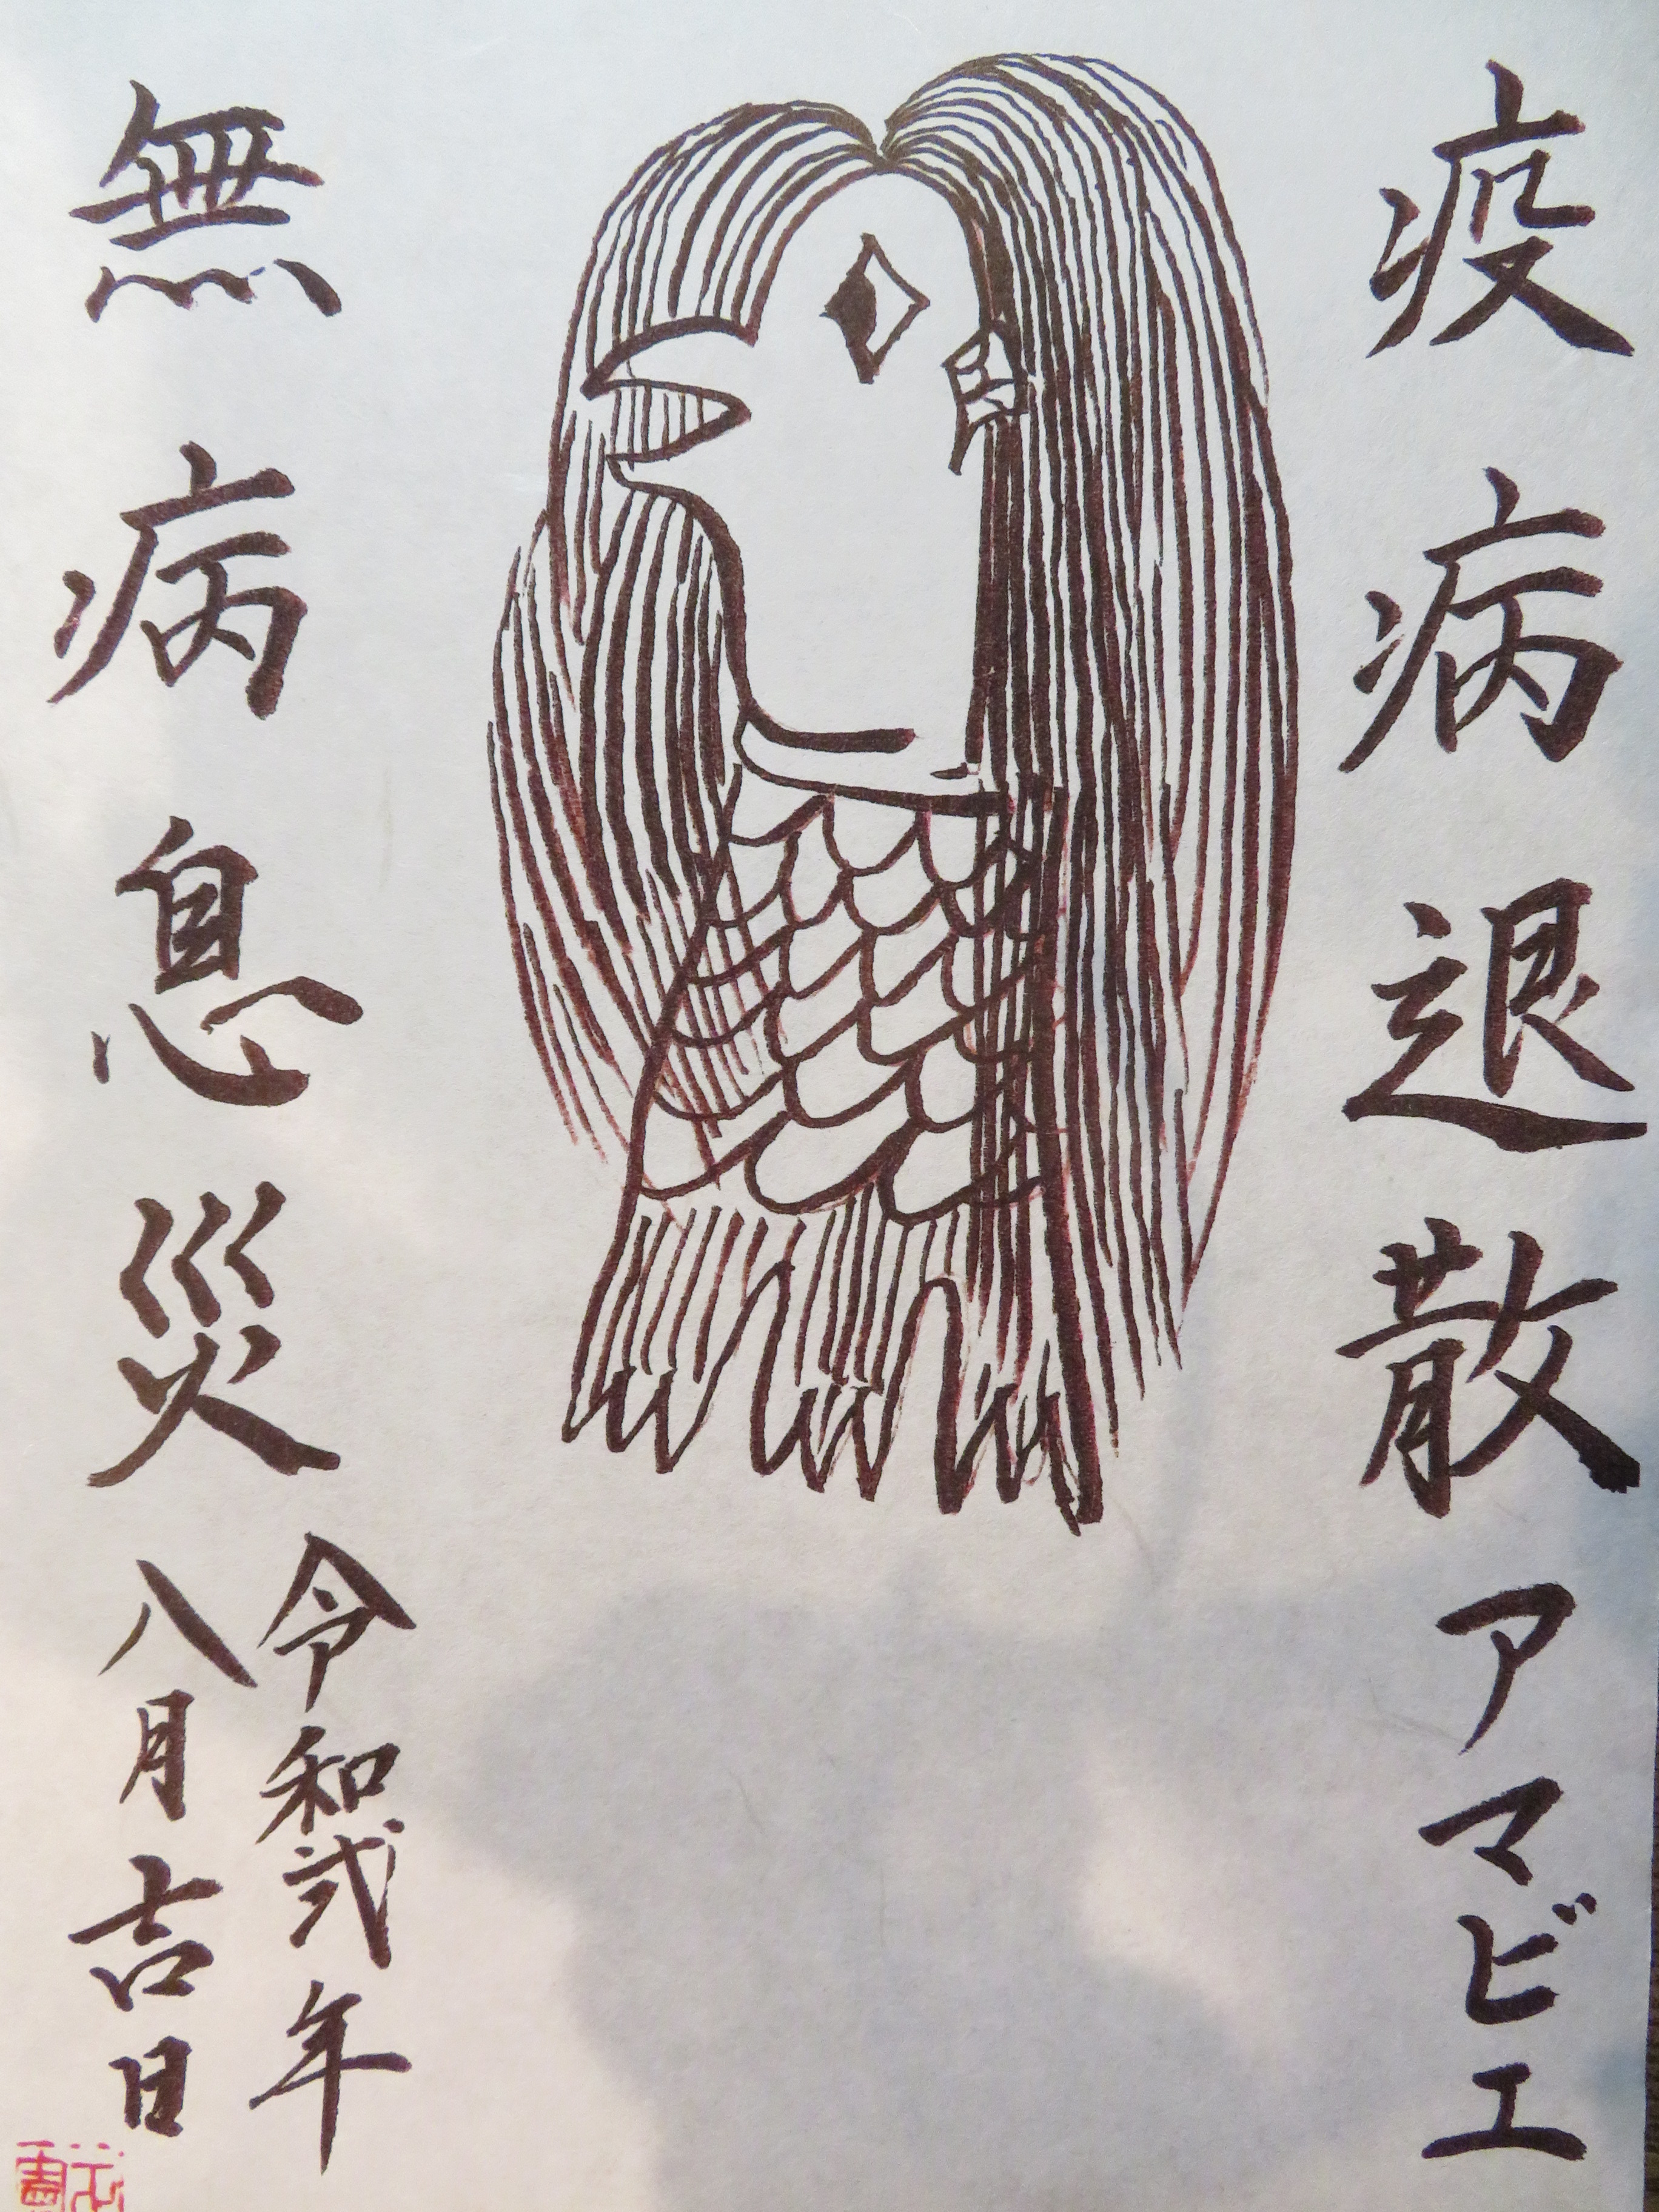 疫病退散アマビエ
無病息災
令和弐年
八月吉日